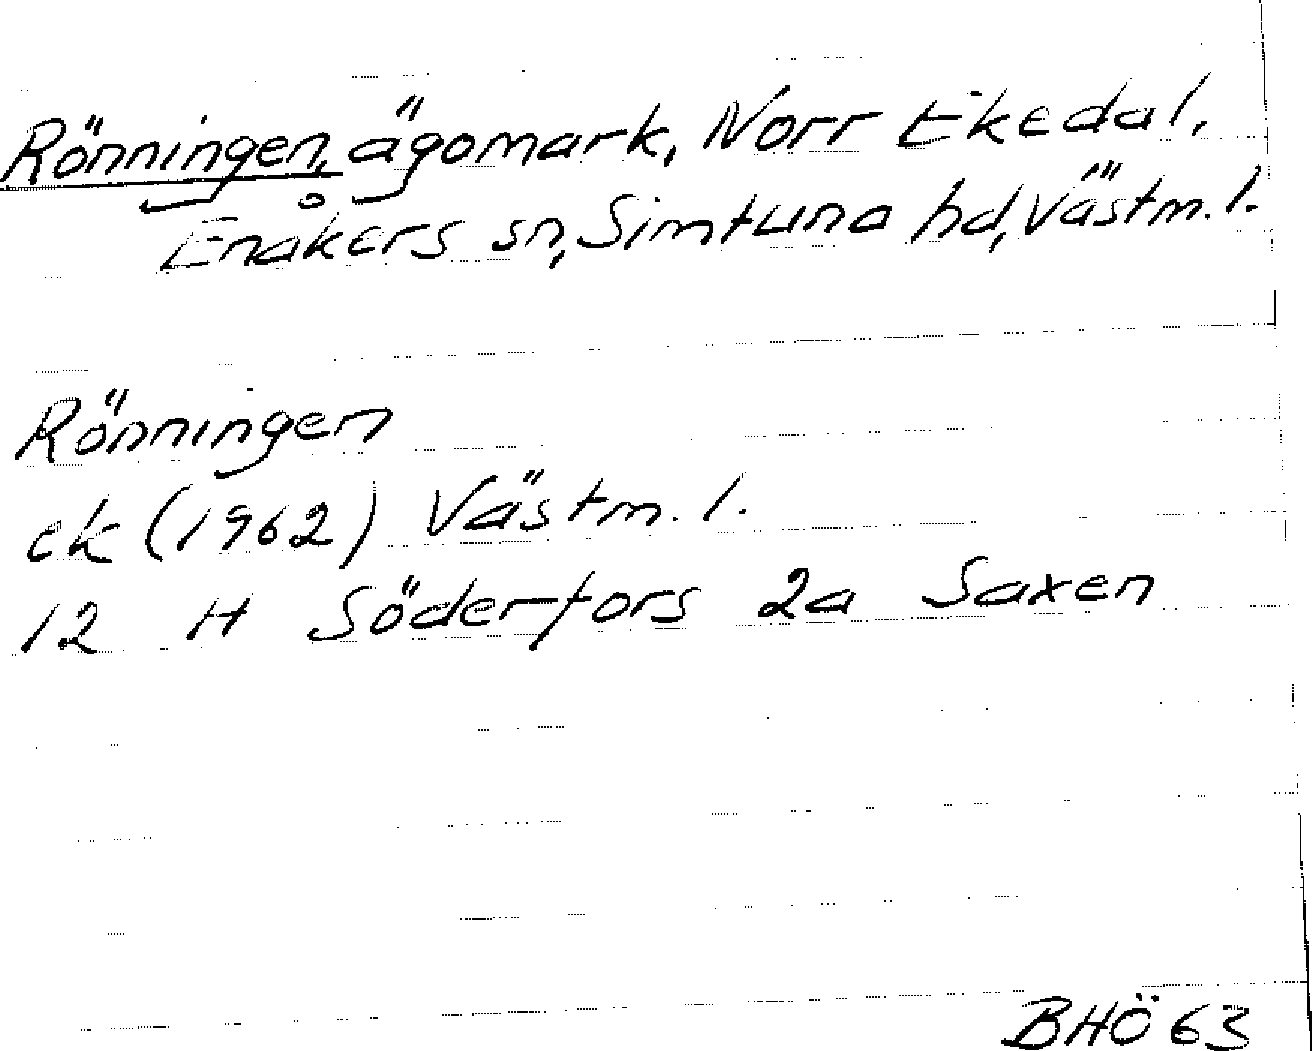 Rönningen, ägomark, Norr Ekedal,
Enåkers sn, Simtuna hd, Västm. l.
Rönningen
ek (1962) Västm. l.
12 H Söderfors 2a Saxen
BHÖ 63